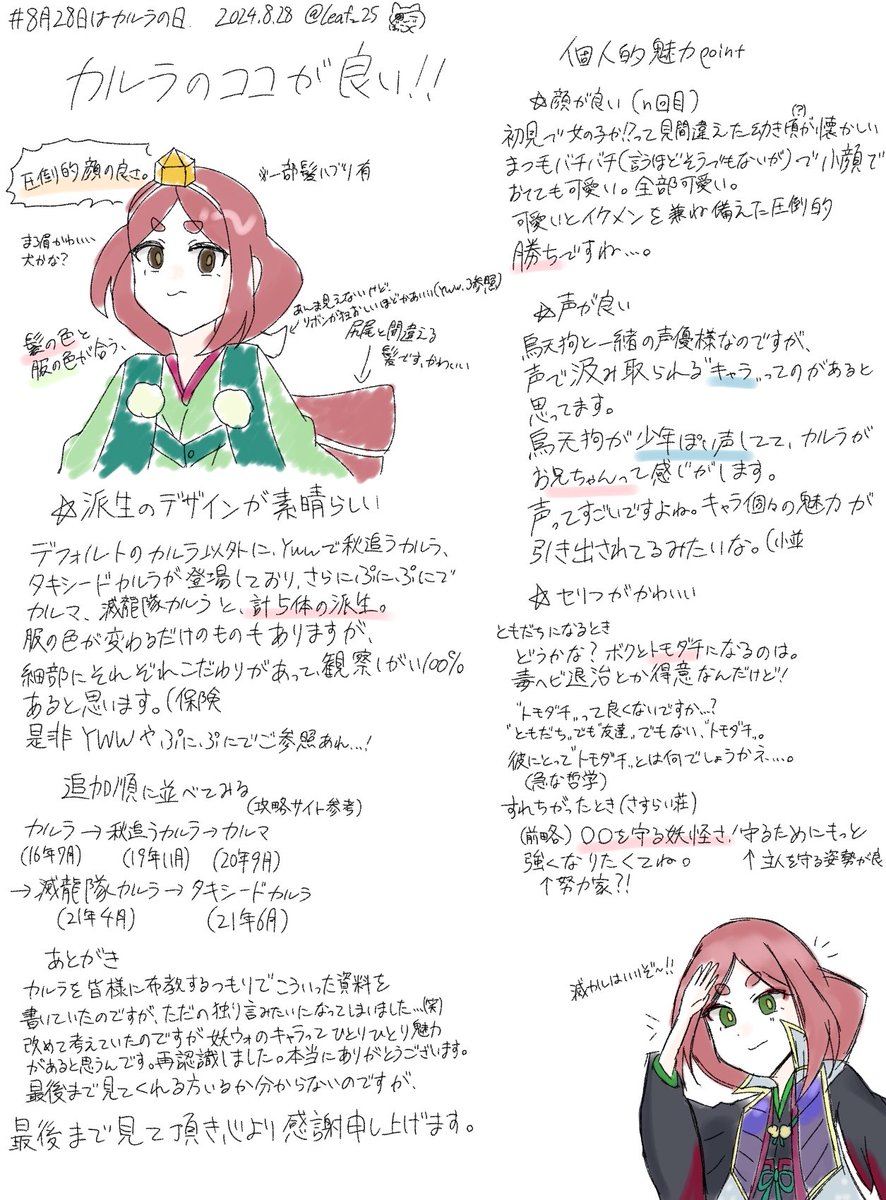 #8月28日はカルラの日 2024.8.28 @Leaf_25
カルラのココが良い!!
圧倒的顔の良さ。
※一部髪いづり有
まろ眉かわいい
犬かな?
髪の色と
服の色が合う、
あんま見えないけど、
リボンが狂おしいほどかあいい(YWW.3参照)
尻尾と間違える
髪です、かわいい
☆派生のデザインが素晴らしい
デフォルトのカルラ以外に、Ywwで秋追うカルラ、
タキシードカルラが登場しており、さらにぷにぷにで
カルマ、滅龍隊カルラと、計5体の派生。
服の色が変わるだけのものもありますが、
細部にそれぞれこだわりがあって、観察しがい100%
あると思います。(保険
是非YWWやぷにぷにでご参照あれ…!
追加順に並べてみる
(攻略サイト参考)
カルラ→秋追うカルラ→カルマ
(16年7月) (19年11月) (20年9月)
→滅龍隊カルラ→タキシードカルラ
(21年4月) (21年6月)
あとがき
カルラを皆様に布教するつもりでこういった資料を
書いていたのですが、ただの独り言みたいになってしまいました…(笑)
改めて考えていたのですが妖ウォのキャラってひとりひとり魅力
があると思うんです。再認識しました。本当にありがとうございます。
最後まで見てくれる方いるか分からないのですが、
最後まで見て頂き心より感謝申し上げます。
個人的魅力point
☆顔が良い(n回目)
初見で女の子か!?って見間違えた幼き頃が(?)懐かしい
まつ毛バチバチ(言うほどそうでもないが)で小顔で
おてても可愛い。全部可愛い。
可愛いとイケメンを兼ね備えた圧倒的
勝ちですね…。
☆声が良い
烏天狗と一緒の声優様なのですが、
声で汲み取られる"キャラ"ってのがあると
思ってます。
烏天狗が少年ぽい声してて、カルラが
お兄ちゃんって感じがします。
声ってすごいですよね。キャラ個々の魅力が
引き出されてるみたいな。(小並
☆セリフがかわいい
ともだちになるとき
どうかな?ボクとトモダチになるのは。
毒ヘビ退治とか得意なんだけど!
"トモダチ"って良くないですか…?
"ともだち"でも"友達"でもない、"トモダチ"。
彼にとって"トモダチ"とは何でしょうかネ…。
(急な哲学)
すれちがったとき(さすらい荘)
(前略)〇〇を守る妖怪さ!守るためにもっと
強くなりたくてね。 ↑主人を守る姿勢が良
↑努力家?!
滅カルはいいぞ〜!!